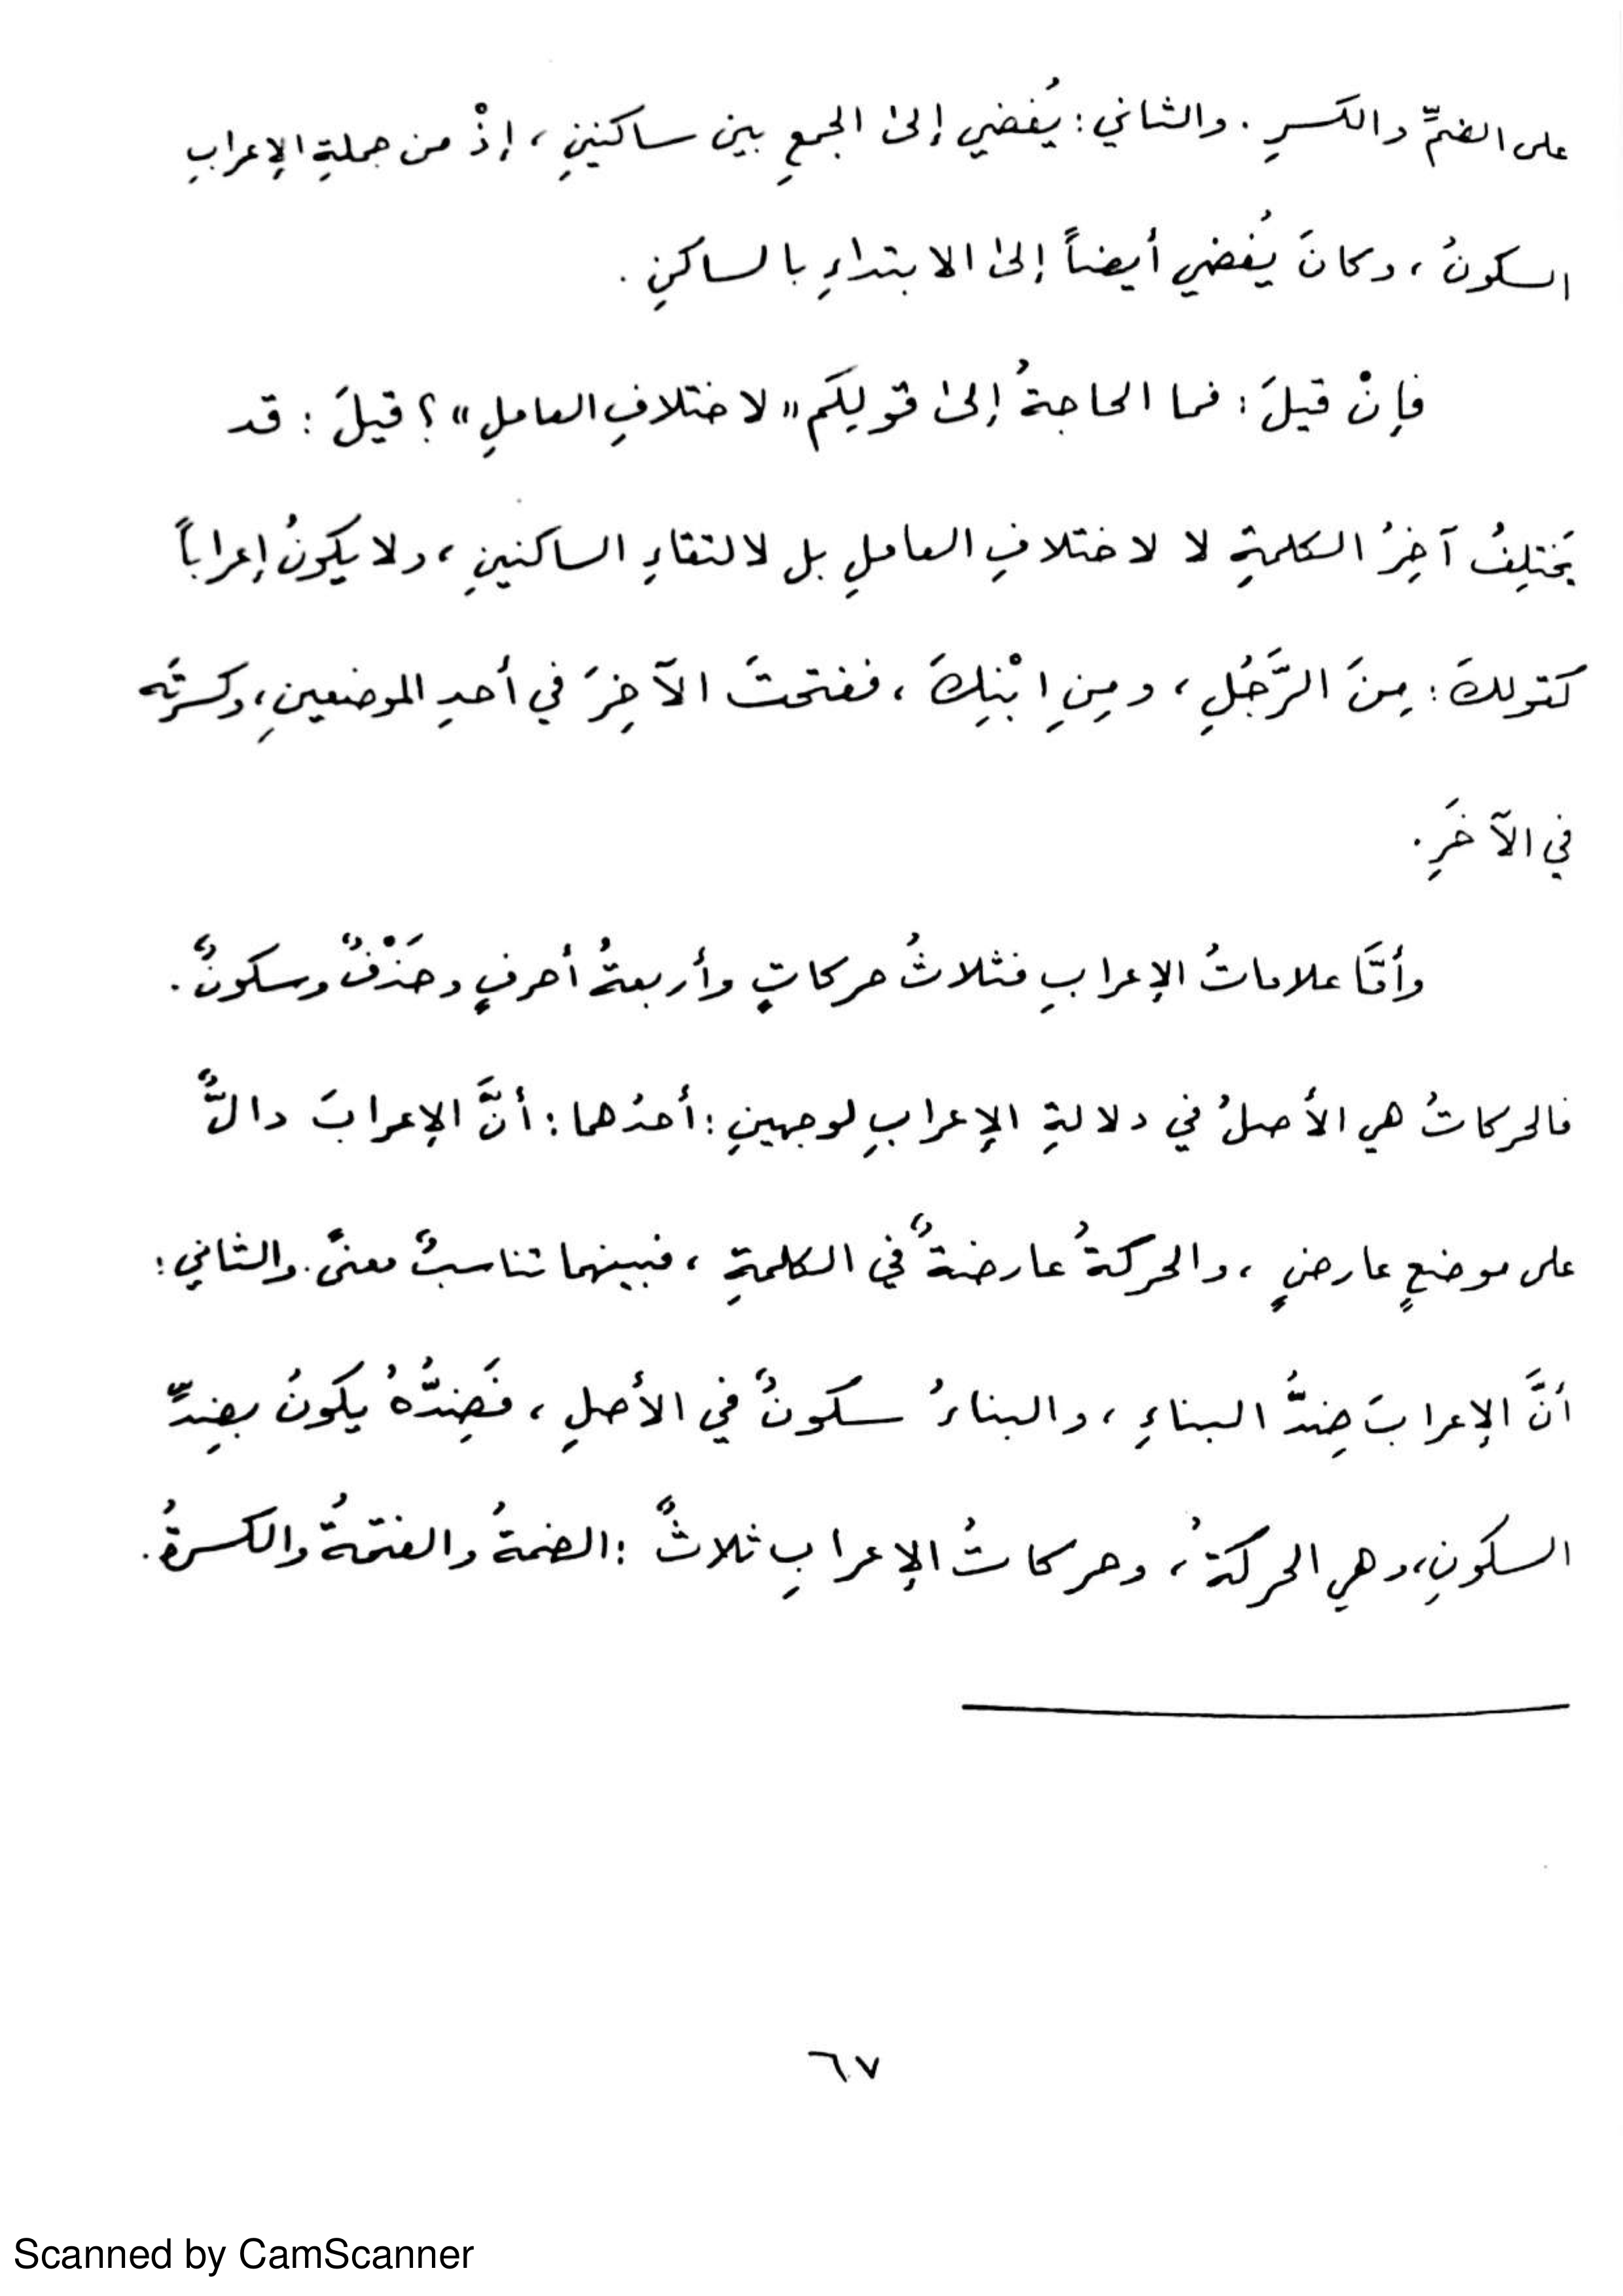 على الضمِّ والكسرِ . والثاني : يُفضي إلىٰ الجمعِ بين ساكنينِ ، إذْ من جملةِ الإعرابِ
السكونُ ، وكانَ يُفضي أيضاً إلىٰ الابتداءِ بالساكنِ .
فإنْ قيلَ : فما الحاجةُ إلىٰ قولِكَم « لاختلافِ العاملِ » ؟ قيلَ : قد
يَختلِفُ آخِرُ الكلمةِ لا لاختلافِ العاملِ بل لالتقاءِ الساكنينِ ، ولا يكونُ إعراباً
كقولكَ : مِنَ الرَّجُلِ ، ومِنِ ابْنِكَ ، ففتحتَ الآخِرَ في أحدِ الموضعينِ ، وكسرتَه
في الآخَرِ .
وأمَّا علاماتُ الإعرابِ فثلاثُ حركاتٍ وأربعةُ أحرفٍ وحَذْفٌ وسكونٌ .
فالحركاتُ هي الأصلُ في دلالةِ الإعرابِ لوجهينِ : أحدُهما : أنَّ الإعرابَ دالٌّ
على موضعٍ عارضٍ ، والحركةُ عارضةٌ في الكلمةِ ، فبينهما تناسبٌ معنىً . والثاني :
أنَّ الإعرابَ ضِدُّ البناءِ ، والبناءُ سكونٌ في الأصلِ ، فَضِدُّهُ يكونُ بضِدِّ
السكونِ ، وهي الحركةُ ، وحركاتُ الإعرابِ ثلاثٌ : الضمةُ والفتحةُ والكسرةُ .
٦٧
Scanned by CamScanner